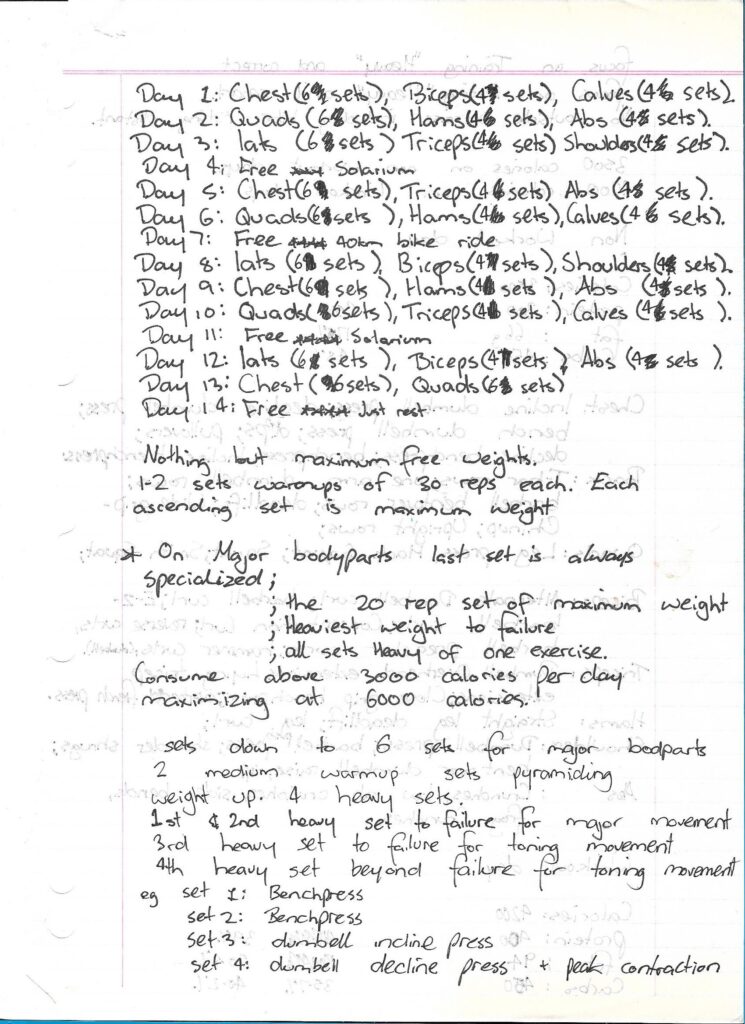 Day 1: Chest(6 sets), Biceps(4 sets), Calves(4 sets).
Day 2: Quads(6 sets), Hams(4 sets), Abs (4 sets).
Day 3: lats (6 sets) Triceps(4 sets) Shoulders(4 sets).
Day 4: Free Solarium
Day 5: Chest(6 sets), Triceps(4 sets) Abs (4 sets).
Day 6: Quads(6 sets), Hams(4 sets), Calves(4 sets).
Day 7: Free 40km bike ride
Day 8: lats (6 sets), Biceps(4 sets), Shoulders(4 sets).
Day 9: Chest(6 sets), Hams(4 sets), Abs (4 sets).
Day 10: Quads(6 sets), Triceps(4 sets), Calves (4 sets).
Day 11: Free Solarium
Day 12: lats (6 sets), Biceps(4 sets), Abs (4 sets).
Day 13: Chest (6 sets), Quads(6 sets)
Day 14: Free Just rest
Nothing but maximum free weights.
1-2 sets warmups of 30 reps each. Each
ascending set is maximum weight
* On Major bodyparts last set is always
specialized;
; the 20 rep set of maximum weight
; Heaviest weight to failure
; all sets Heavy of one exercise.
Consume above 3000 calories per day
maximizing at 6000 calories.
sets down to 6 sets for major bodparts
2 medium warmup sets pyramiding
weight up. 4 heavy sets.
1st & 2nd heavy set to failure for major movement
3rd heavy set to failure for toning movement
4th heavy set beyond failure for toning movement
eg set 1: Benchpress
set 2: Benchpress
set 3: dumbell incline press
set 4: dumbell decline press + peak contraction